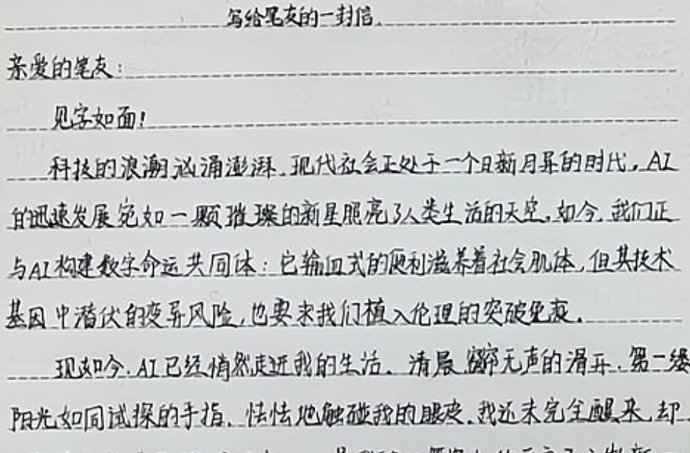 写给笔友的一封信
亲爱的笔友：
见字如面！
科技的浪潮汹涌澎湃，现代社会正处于一个日新月异的时代，AI
的迅速发展宛如一颗璀璨的新星照亮了人类生活的天空。如今，我们正
与AI构建数字命运共同体：它输血式的便利滋养着社会肌体，但其技术
基因中潜伏的变异风险，也要求我们植入伦理的突破免疫。
现如今，AI已经悄然走进我的生活。清晨，窗帘无声的滑开，第一缕
阳光如同试探的手指，怯怯地触碰我的眼皮。我还未完全醒来，却